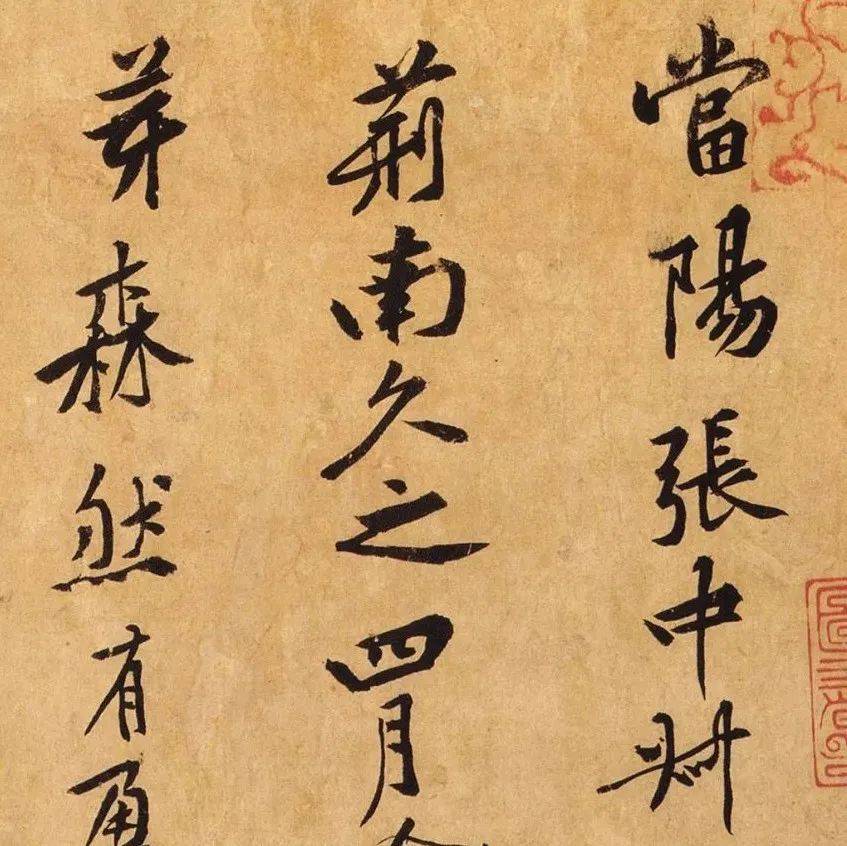 當陽張中叔
荊南久之四月
芽森然有